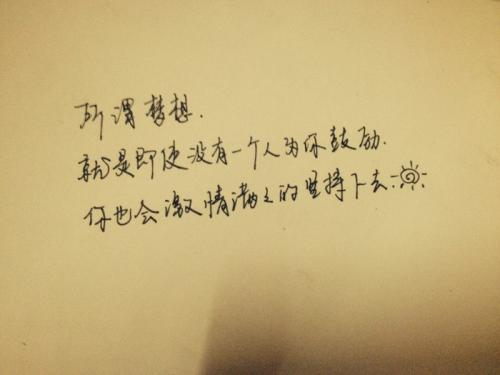 所谓梦想.
就是即使没有一个人为你鼓励.
你也会激情满之的坚持下去.